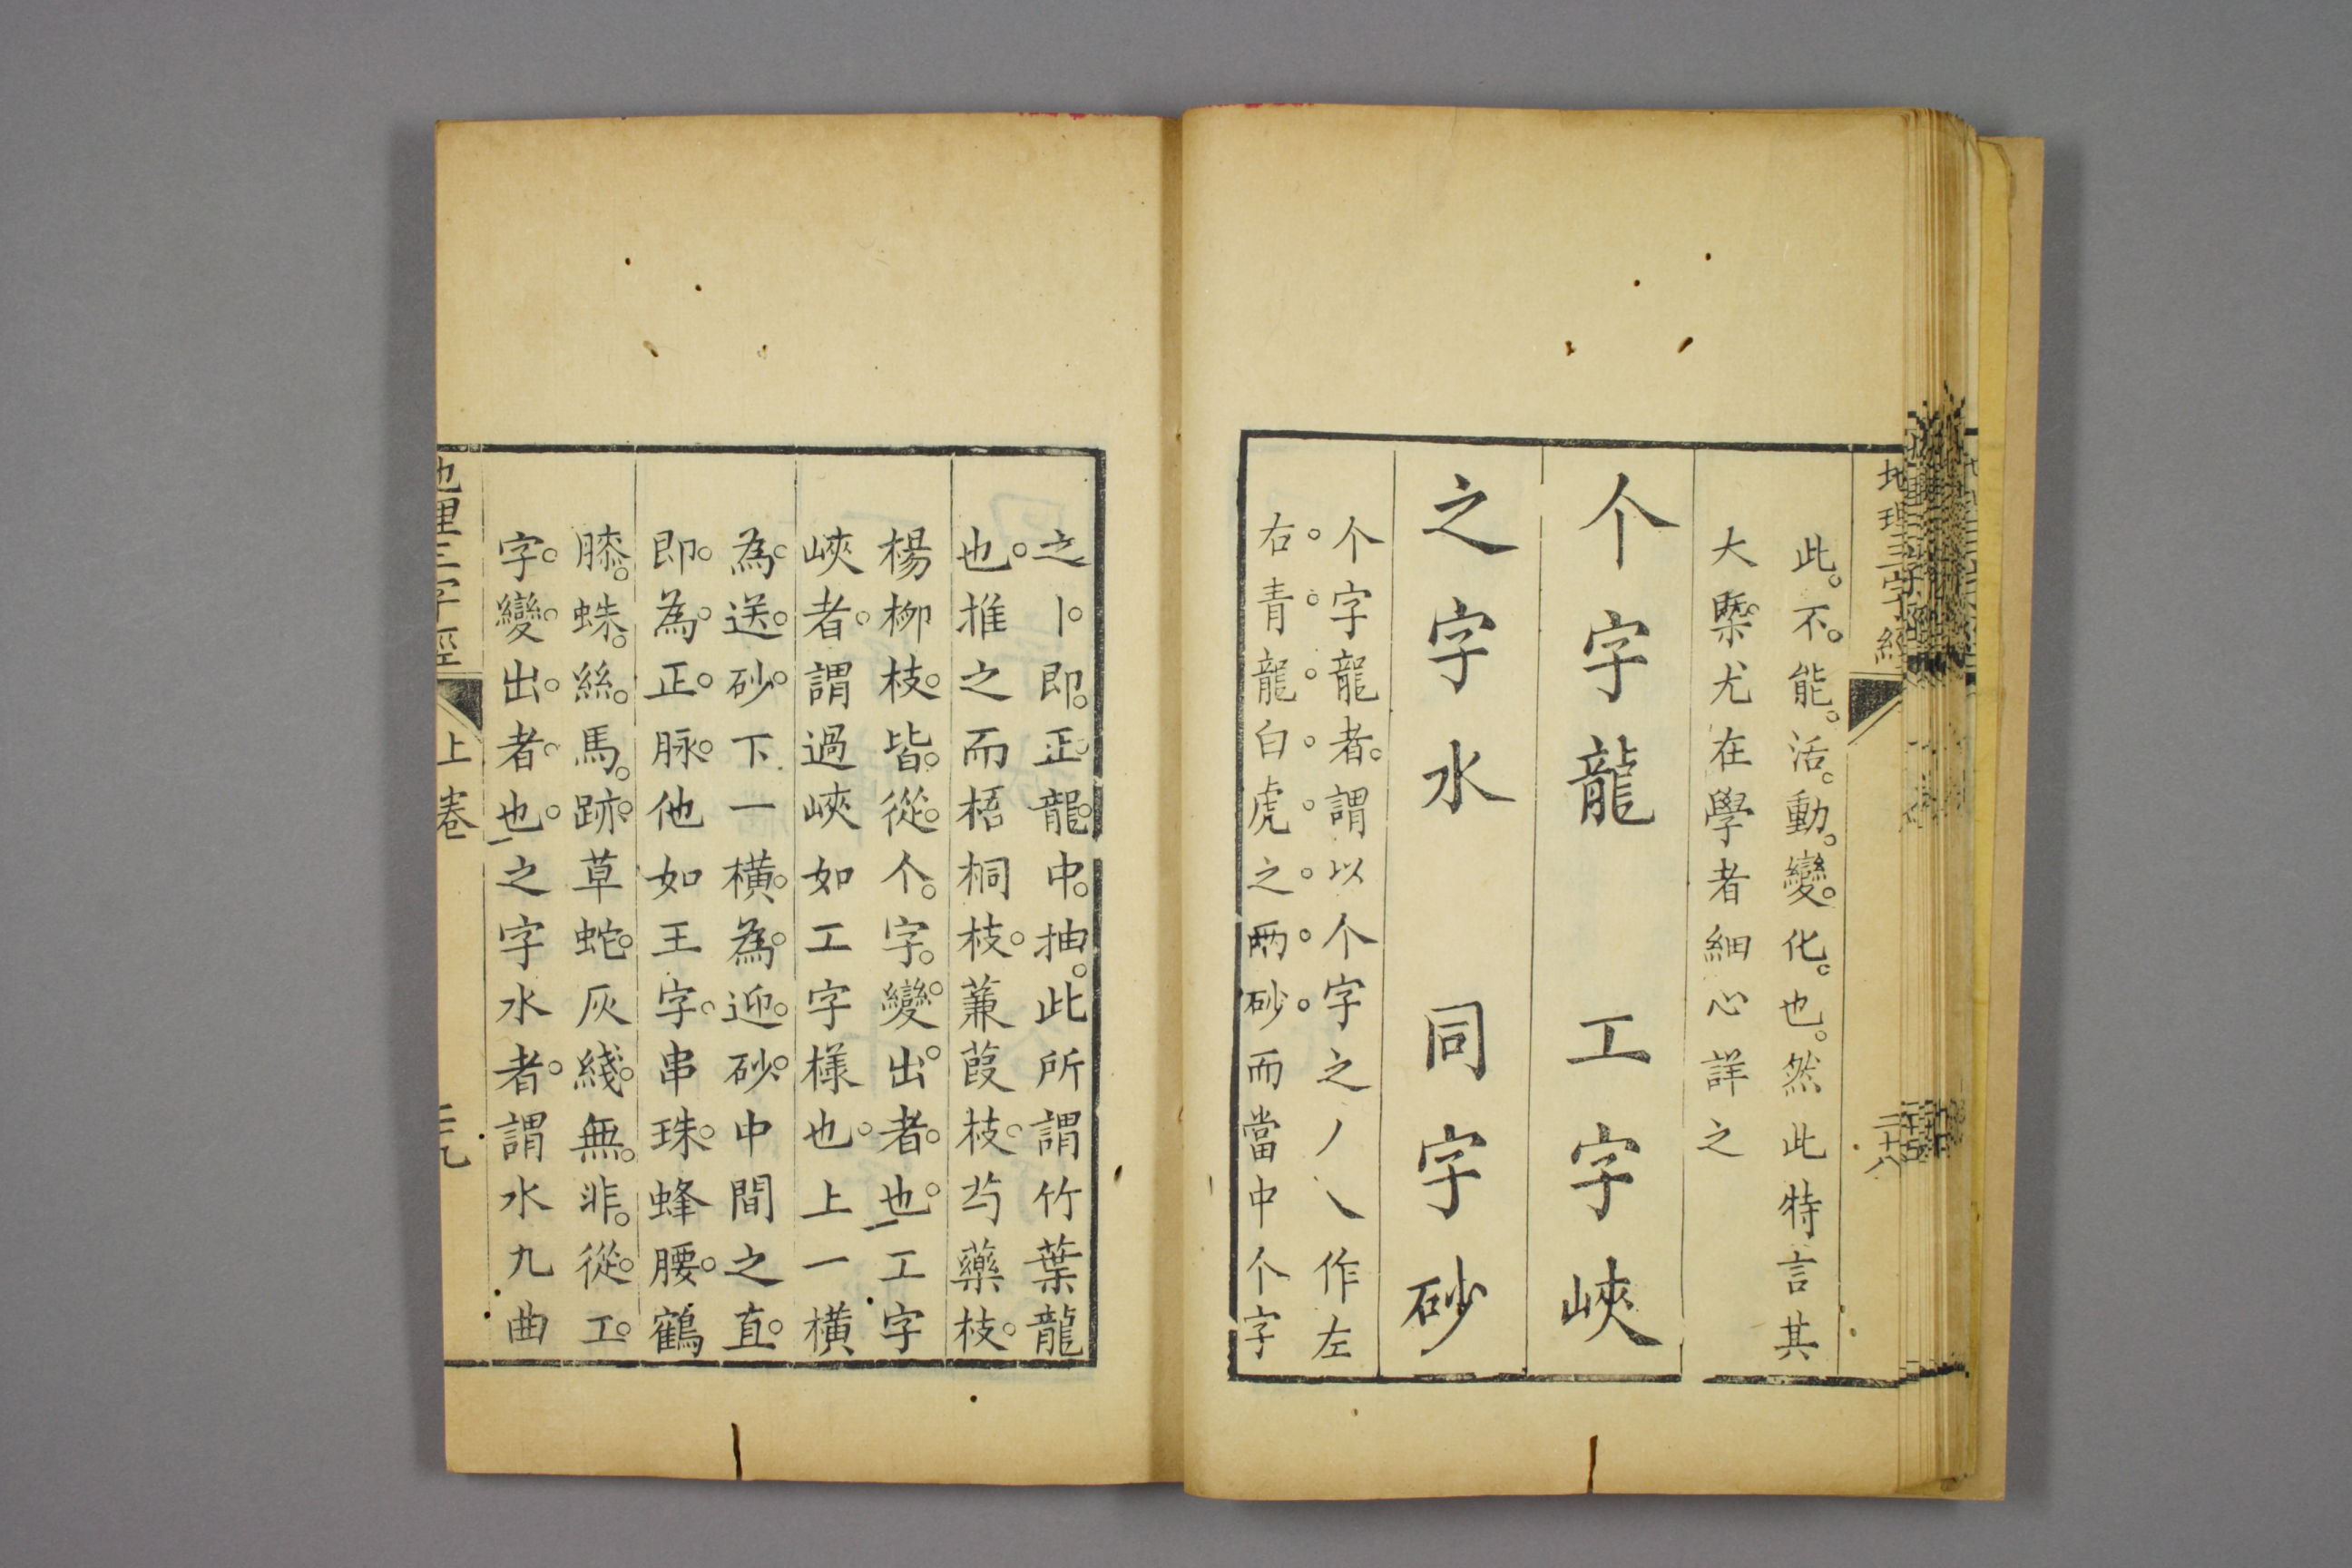 地理三字經
二十八
此不能活動變化也然此特言其
大槩尤在學者細心詳之
个字龍 工字峽
之字水 同字砂
个字龍者謂以个字之丿乀作左
右青龍白虎之兩砂而當中个字
之丨即正龍中抽此所謂竹葉龍
也推之而梧桐枝蒹葭枝芍藥枝
楊柳枝皆從个字變出者也工字
峽者謂過峽如工字樣也上一橫
為送砂下一橫為迎砂中間之直
即為正脉他如王字串珠蜂腰鶴
膝蛛絲馬跡草蛇灰綫無非從工
字變出者也之字水者謂水九曲
地理三字經
上卷
二九